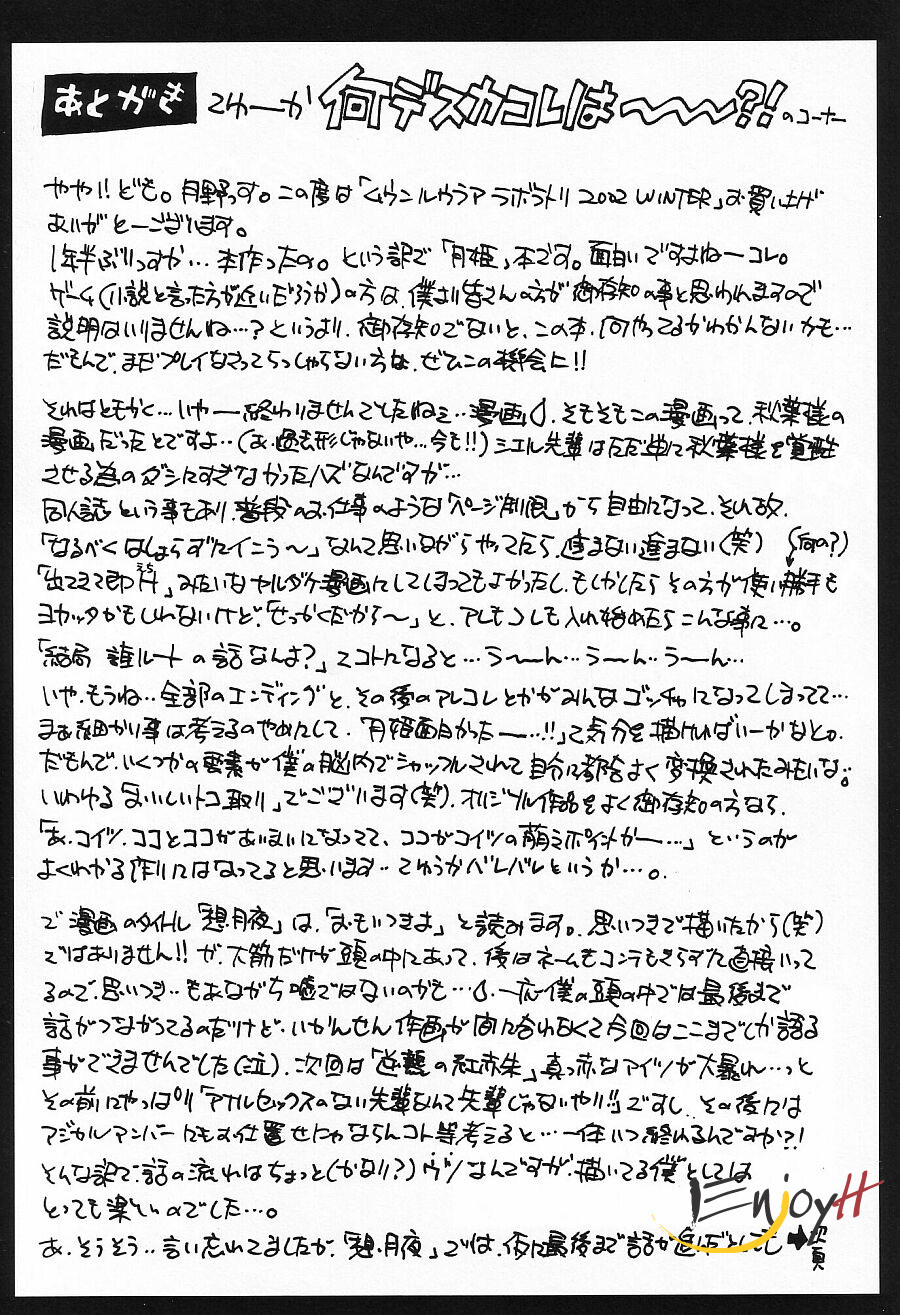 あとがき てゆーか 何デスカコレは〜〜〜?! のコーナー
やや!!ども。月野っす。この度は「ムウンルウラア ラボラトリ 2002 WINTER」お買い上げ
ありがとーございます。
1年半ぶりっすか…本作ったの。という訳で「月姫」本です。面白いですよねーコレ。
ゲーム(小説と言った方が近いだろうか)の方は、僕より皆さんの方が御存知の事と思われますので
説明はいりませんね…?というより、御存知でないと、この本、何やってるかわかんないかも…
だもんで、まだプレイなさってらっしゃらない方は、ぜひこの機会に!!
それはともかく…いやー終わりませんでしたねェ…漫画。そもそもこの漫画って、秋葉様の
漫画だったとですよ…(あ、過去形じゃないや…今も!!)シエル先輩はただ単に秋葉様を覚醒
させる為のダシにすぎなかったハズなんですが…
同人誌という事もあり、普段のお仕事のような「ページ制限」から自由になって、それ故、
「なるべくはしょらずにイこう〜」なんて思いながらやってたら、進まない進まない(笑)(何の?)
「出てきて即」みたいなヤルダケ漫画にしてしまってもよかったし、もしかしたらその方が使い勝手も
ヨカッタかもしれないけど、「せっかくだから〜」と、アレもコレも入れ始めたらこんな事に…。
「結局 誰ルートの話なんよ?」てコトになると…う〜ん…う〜ん…う〜ん…
いや、もうね…全部のエンディングと、その後のアレコレとかがみんなゴッチャになってしまってて…
まぁ細かい事は考えるのやめにして、「月姫面白かった〜…!!」て気分を描ければいーかなと。
だもんで、いくつかの要素が僕の脳内でシャッフルされて自分に都合よく変換されたみたいな。
いわゆる「おいしいトコ取り」でございます(笑)。オリジナル作品をよく御存知の方なら、
「あ、コイツ、ココとココがあいまいになってて、ココがコイツの萌えポイントかー…」というのが
よくわかる作りにはなってると思います…てゆうかバレバレというか…。
で漫画のタイトル「想月夜」は、「おもいつきよ」と読みます。思いつきで描いたから(笑)
ではありません!!が、大筋だけが頭の中にあって、後はネームもコンテもきらずに直接いって
るので、思いつき…もあながち嘘ではないのかも…。一応僕の頭の中では最後まで
話がつながってるのだけど、いかんせん作画が間に合わなくて今回はここまでしか語る
事ができませんでした(泣)。次回は「逆襲の紅赤朱」真っ赤なアイツが大暴れ…っと
その前にやっぱり「アナルセックスのない先輩なんて先輩じゃないやい!!」ですし、その後には
マジカルアンバーにもお仕置きせにゃならんコト等考えると…一体いつ終わるんですか?!
そんな訳で、話の流れはちょっと(かなり?)ヴツなんですが、描いてる僕としては
とっても楽しいのでした…。
あ、そうそう…言い忘れてましたが、「想月夜」では、仮に最後まで話が進んだとしても
➡次頁
EnjoyH